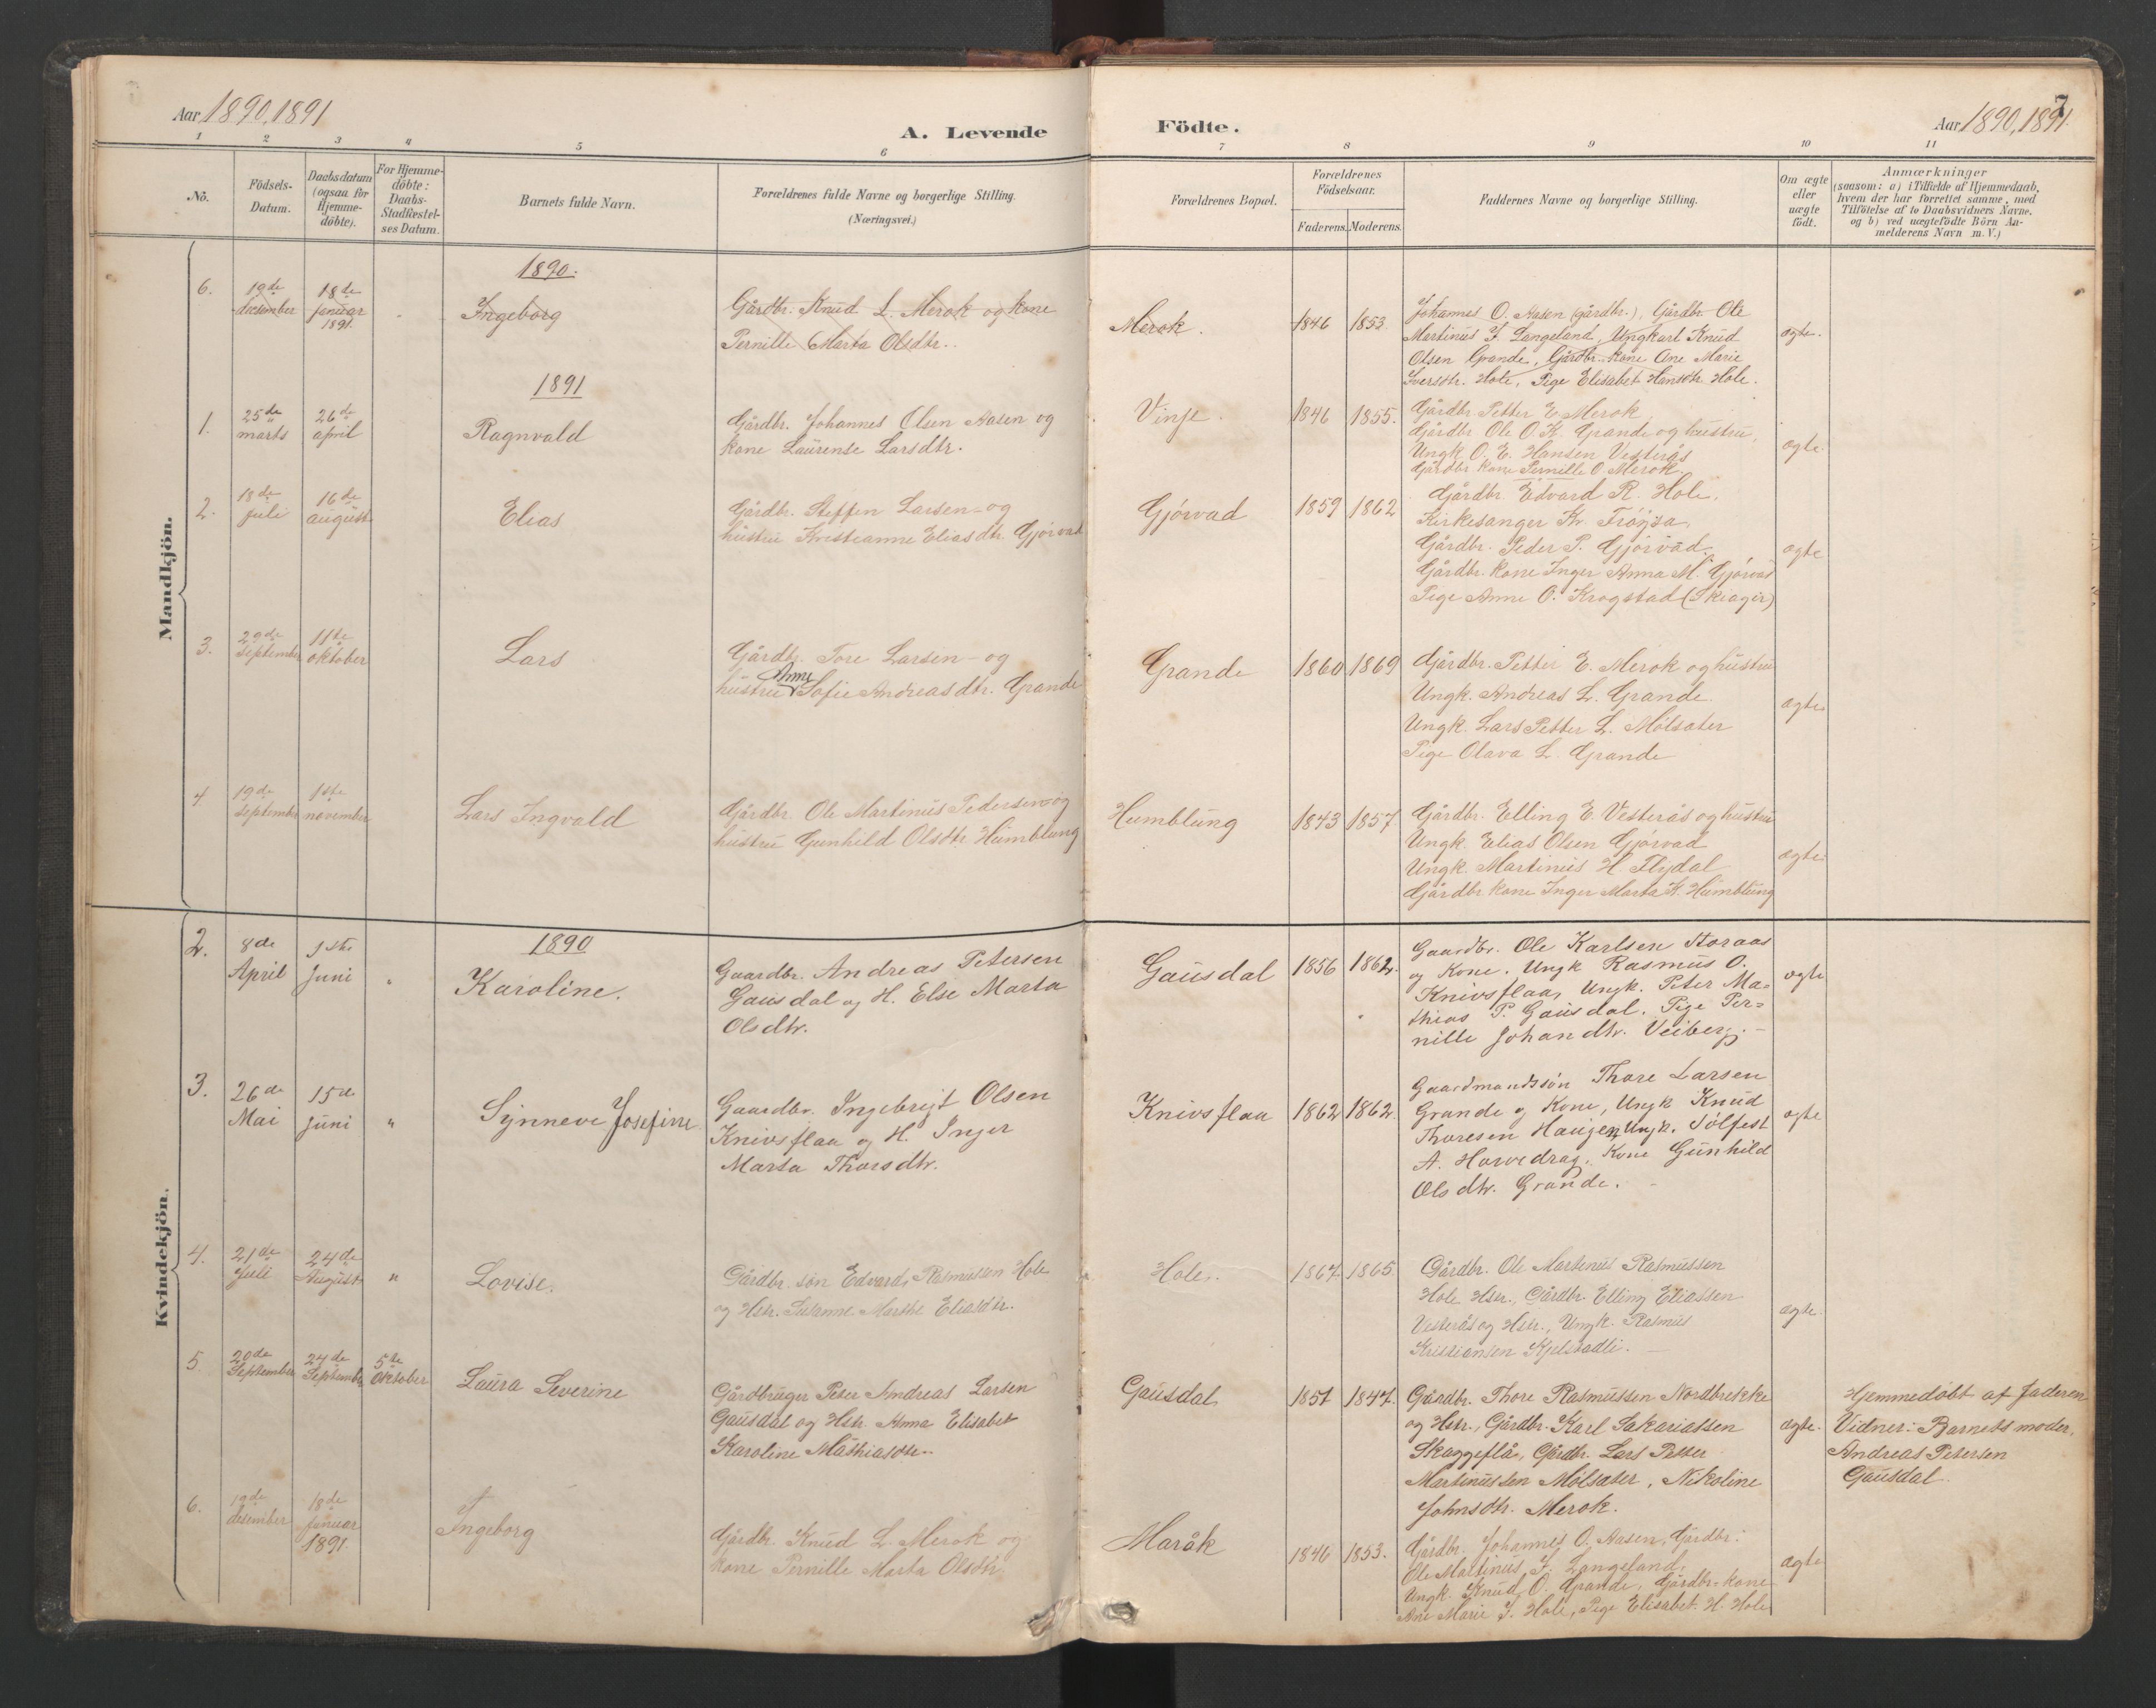 7
Aar 1890, 1891
A. Levende
Födte.
Aar 1890, 1891.
1 2 3 4 5 6 7 8 9 10 11
No.
Födsels-
Datum.
Daabsdatum
(ogsaa for
Hjemme-
döbte).
For Hjemme-
döbte:
Daabs-
Stadfæstel-
ses Datum.
Barnets fulde Navn.
Forældrenes fulde Navne og borgerlige Stilling.
(Næringsvei.)
Forældrenes Bopæl.
Forældrenes
Födselsaar.
Faderens. Moderens.
Faddernes Navne og borgerlige Stilling.
Om ægte
eller
uægte
födt.
Anmærkninger
(saasom: a) i Tilfælde af Hjemmedaab,
hvem der har forrettet samme, med
Tilföielse af to Daabsvidners Navne,
og b) ved uægtefödte Börn An-
melderens Navn m. V.)
Mandkjön.
1890.
6.
19de
desember
18de
januar
1891
Ingeborg
Gårdbr. Knud L. Merok og kone
Pernille Marta Olsdtr.
Merok.
1846 1853
Johannes O. Aasen (gårdbr.), Gårdbr. Ole
Martinus J. Langeland, Ungkarl Knud
Olsen Grande, Gårdbr. kone Ane Marie
Iversdtr. Hole, Pige Elisabet Hansdtr. Hole.
ægte.
1891
1.
25de
marts
26de
april
Ragnvald
Gårdbr. Johannes Olsen Aasen og
kone Laurense Larsdtr.
Vinje.
1846 1855.
Gårdbr. Petter E. Merok,
Gårdbr Ole O. K. Grande og hustru,
Ungk O. E. Hansen Vesterås
Gårdbr. kone Pernille O Merok.
ægte.
2.
18de
juli
16de
august
Elias
Gårdbr. Steffen Larsen og
hustru Kristianne Eliasdtr. Gjørvad
Gjørvad
1859 1862
Gårdbr Edvard R. Hole,
Kirkesanger Kr. Frøysa,
Gårdbr. Peder P. Gjørvad.
Gårdbr. kone Inger Anna M. Gjørvad
Pige Anne O. Krogstad (Skeager)
ægte
3.
29de
september
11te
oktober
Lars
Gårdbr. Tore Larsen og
hustru Anne Sofie Andreasdtr. Grande
Grande
1860 1869
Gårdbr. Petter E. Merok og hustru
Ungk. Andreas L. Grande
Ungk. Lars Petter L. Mølsæter
Pige Olava L. Grande
ægte
4
19de
september
1ste
november
Lars Ingvald
Gårdbr Ole Martinus Pedersen og
hustru Gunhild Olsdtr. Humblung
Humblung
1843 1857.
Gårdbr. Elling E. Vesterås og hustru
Ungk. Elias Olsen Gjørvad
Ungk. Martinus H Flydal
Gårdbr kone Inger Marta K. Humblung
ægte
Kvindekjön.
1890
2.
8de
April
1ste
Juni
"
Karoline.
Gaardbr. Andreas Petersen
Gausdal og H. Else Marta
Olsdtr.
Gausdal
1856 1862.
Gaardbr. Ole Karlsen Storaas
og Kone. Ungk Rasmus O.
Knivsflaa, Ungk. Peter Ma=
thias P. Gausdal. Pige Per=
nille Johandtr. Veiberg.
ægte
3.
26de
Mai
15de
Juni
"
Synneve Josefine
Gaardbr. Ingebrigt Olsen
Knivsflaa og H. Inger
Marta Thorsdtr.
Knivsflaa
1862 1862.
Gaardmandssøn Thore Larsen
Grande og Kone, Ungk Knud
Thoresen Haugen, Ungk. Sølfest
A. Horvedrag. Kone Gunhild
Olsdtr. Grande.
ægte
4.
21de
Juli
24de
August
"
Lovise.
Gårdbr. søn Edvard Rasmussen Hole
og Hstr. Susanne Marthe Eliasdtr.
Hole.
1867. 1865.
Gårdbr. Ole Martinus Rasmussen
Hole Hstr., Gårdbr. Elling Eliassen
Vesterås og Hstr., Ungk. Rasmus
Kristiansen Kjelstadli.
ægte.
5.
20de
September
24de
September
5te
Oktober
Laura Severine
Gårdbruger Peter Andreas Larsen
Gausdal og Hstr. Anna Elisabet
Karoline Mathiasdtr.
Gausdal
1851 1847.
Gårdbr. Thore Rasmussen Nordbrekke
og Hstr., Gårdbr. Karl Sakariassen
Skaggeflå, Gårdbr. Lars Petter
Martinussen Mølsæter, Nikoline
Johnsdtr. Merok.
ægte.
Hjemmedøbt af Faderen
Vidner: Barnets moder,
Andreas Petersen
Gausdal.
6.
19de
desember
18de
januar
1891
Ingeborg
Gårdbr. Knud L. Merok og
kone Pernille Marta Olsdtr.
Maråk
1846 1853.
Gårdbr. Johannes O. Aasen, Gårdbr.
Ole Martinus J. Langeland,
Ungk. Knud O. Grande, Gårdbr= kone
Ane Marie I. Hole, Pige Elisabet H. Hole
ægte